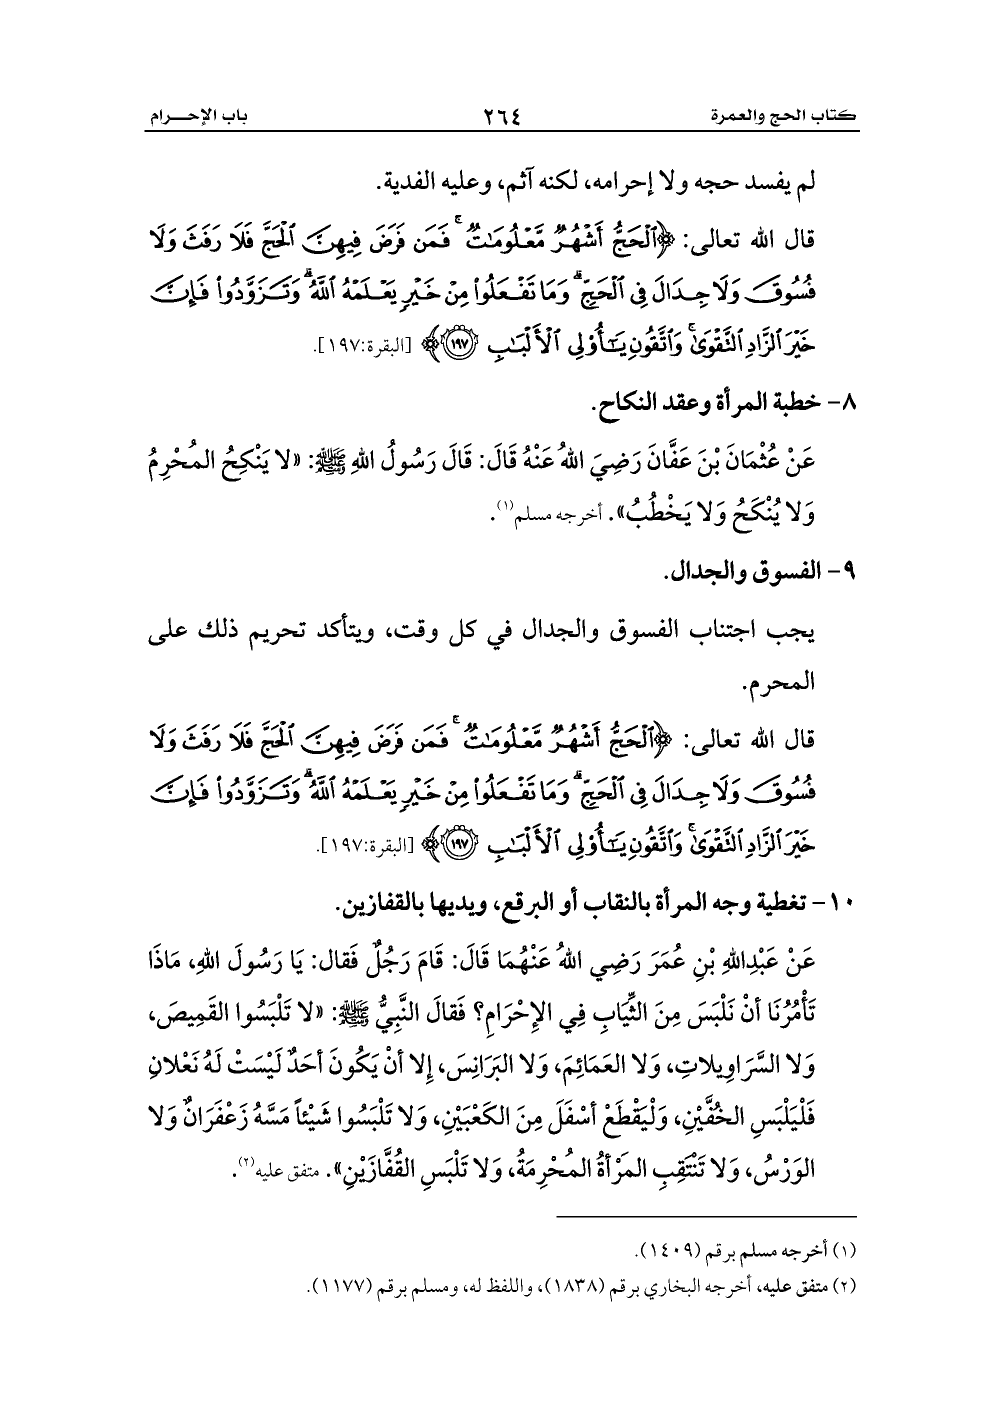 كتاب الحج والعمرة ٢٦٤ باب الإحـــرام
لم يفسد حجه ولا إحرامه، لكنه آثم، وعليه الفدية.
قال الله تعالى: ﴿ٱلْحَجُّ أَشْهُرٌ مَّعْلُومَـٰتٌ ۚ فَمَن فَرَضَ فِيهِنَّ ٱلْحَجَّ فَلَا رَفَثَ وَلَا
فُسُوقَ وَلَا جِدَالَ فِى ٱلْحَجِّ ۗ وَمَا تَفْعَلُوا۟ مِنْ خَيْرٍ يَعْلَمْهُ ٱللَّهُ ۗ وَتَزَوَّدُوا۟ فَإِنَّ
خَيْرَ ٱلزَّادِ ٱلتَّقْوَىٰ ۚ وَٱتَّقُونِ يَـٰٓأُو۟لِى ٱلْأَلْبَـٰبِ ١٩٧﴾ [البقرة:١٩٧].
٨- خطبة المرأة وعقد النكاح.
عَنْ عُثْمَانَ بْنَ عَفَّانَ رَضِيَ اللهُ عَنْهُ قَالَ: قَالَ رَسُولُ اللهِ ﷺ: «لا يَنْكِحُ المُحْرِمُ
وَلا يُنْكَحُ وَلا يَخْطُبُ». أخرجه مسلم(١).
٩- الفسوق والجدال.
يجب اجتناب الفسوق والجدال في كل وقت، ويتأكد تحريم ذلك على
المحرم.
قال الله تعالى: ﴿ٱلْحَجُّ أَشْهُرٌ مَّعْلُومَـٰتٌ ۚ فَمَن فَرَضَ فِيهِنَّ ٱلْحَجَّ فَلَا رَفَثَ وَلَا
فُسُوقَ وَلَا جِدَالَ فِى ٱلْحَجِّ ۗ وَمَا تَفْعَلُوا۟ مِنْ خَيْرٍ يَعْلَمْهُ ٱللَّهُ ۗ وَتَزَوَّدُوا۟ فَإِنَّ
خَيْرَ ٱلزَّادِ ٱلتَّقْوَىٰ ۚ وَٱتَّقُونِ يَـٰٓأُو۟لِى ٱلْأَلْبَـٰبِ ١٩٧﴾ [البقرة:١٩٧].
١٠- تغطية وجه المرأة بالنقاب أو البرقع، ويديها بالقفازين.
عَنْ عَبْدِاللهِ بْنِ عُمَرَ رَضِي اللهُ عَنْهُمَا قَالَ: قَامَ رَجُلٌ فَقال: يَا رَسُولَ اللهِ، مَاذَا
تَأْمُرُنَا أنْ نَلْبَسَ مِنَ الثِّيَابِ فِي الإحْرَامِ؟ فَقالَ النَّبِيُّ ﷺ: «لا تَلْبَسُوا القَمِيصَ،
وَلا السَّرَاوِيلاتِ، وَلا العَمَائِمَ، وَلا البَرَانِسَ، إلا أنْ يَكُونَ أحَدٌ لَيْسَتْ لَهُ نَعْلانِ
فَلْيَلْبَسِ الخُفَّيْنِ، وَلْيَقْطَعْ أسْفَلَ مِنَ الكَعْبَيْنِ، وَلا تَلْبَسُوا شَيْئاً مَسَّهُ زَعْفَرَانٌ وَلا
الوَرْسُ، وَلا تَنْتَقِبِ المَرْأةُ المُحْرِمَةُ، وَلا تَلْبَسِ القُفَّازَيْنِ». متفق عليه(٢).
(١) أخرجه مسلم برقم (١٤٠٩).
(٢) متفق عليه، أخرجه البخاري برقم (١٨٣٨)، واللفظ له، ومسلم برقم (١١٧٧).